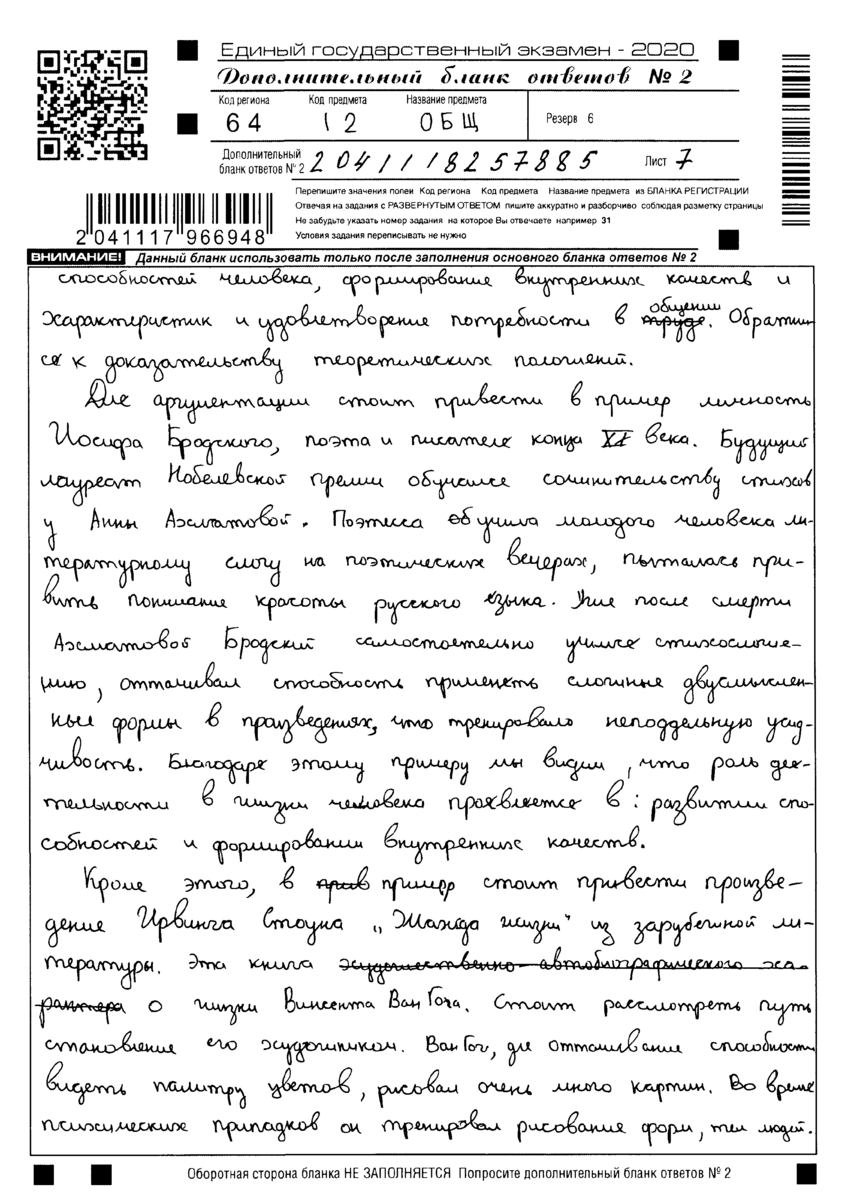 Единый государственный экзамен - 2020
Дополнительный бланк ответов № 2
Код региона Код предмета Название предмета
64 12 ОБЩ Резерв 6
Дополнительный бланк ответов № 2 2041118257885 Лист 7
Перепишите значения полей Код региона Код предмета Название предмета из БЛАНКА РЕГИСТРАЦИИ
Отвечая на задания с РАЗВЕРНУТЫМ ОТВЕТОМ пишите аккуратно и разборчиво соблюдая разметку страницы
Не забудьте указать номер задания на которое Вы отвечаете например 31
Условия задания переписывать не нужно
2 041117 966948
ВНИМАНИЕ! Данный бланк использовать только после заполнения основного бланка ответов № 2
способностей человека, формирование внутренних качеств и
общении
характеристик и удовлетворение потребности в труде. Обратим-
ся к доказательству теоретических положений.
Для аргументации стоит привести в пример личность
Иосифа Бродского, поэта и писателя конца XX века. Будущий
лауреат Нобелевской премии обучался сочинительству стихов
у Анны Ахматовой. Поэтесса обучила молодого человека ли-
тературному слогу на поэтических вечерах, пыталась при-
вить понимание красоты русского языка. Уже после смерти
Ахматовой Бродский самостоятельно учился стихосложе-
нию, оттачивал способность применять сложные двусмыслен-
ные формы в произведениях, что тренировало неподдельную усид-
чивость. Благодаря этому примеру мы видим, что роль дея-
тельности в жизни человека проявляется в: развитии спо-
собностей и формировании внутренних качеств.
Кроме этого, в прив пример стоит привести произве-
дение Ирвинга Стоуна „Жажда жизни" из зарубежной ли-
тературы. Эта книга художественно-автобиографического ха-
рактера о жизни Винсента Ван Гога. Стоит рассмотреть путь
становление его художником. Ван Гог, для оттачивание способности
видеть палитру цветов, рисовал очень много картин. Во время
психических припадков он тренировал рисование форм, тел людей.
Оборотная сторона бланка НЕ ЗАПОЛНЯЕТСЯ Попросите дополнительный бланк ответов № 2